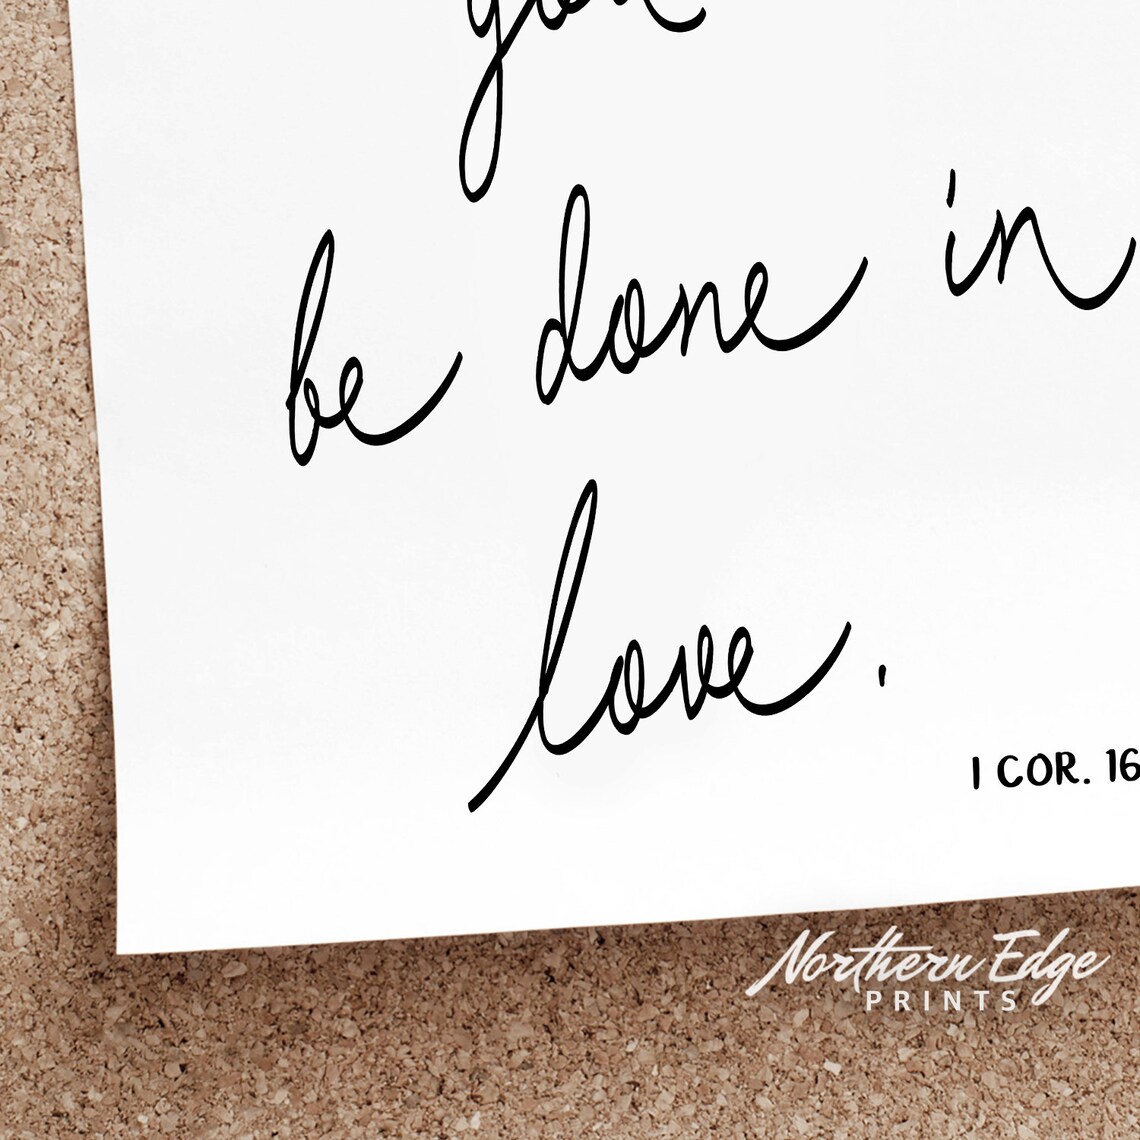 you
be done in
love.
1 COR. 16
Northern Edge
PRINTS